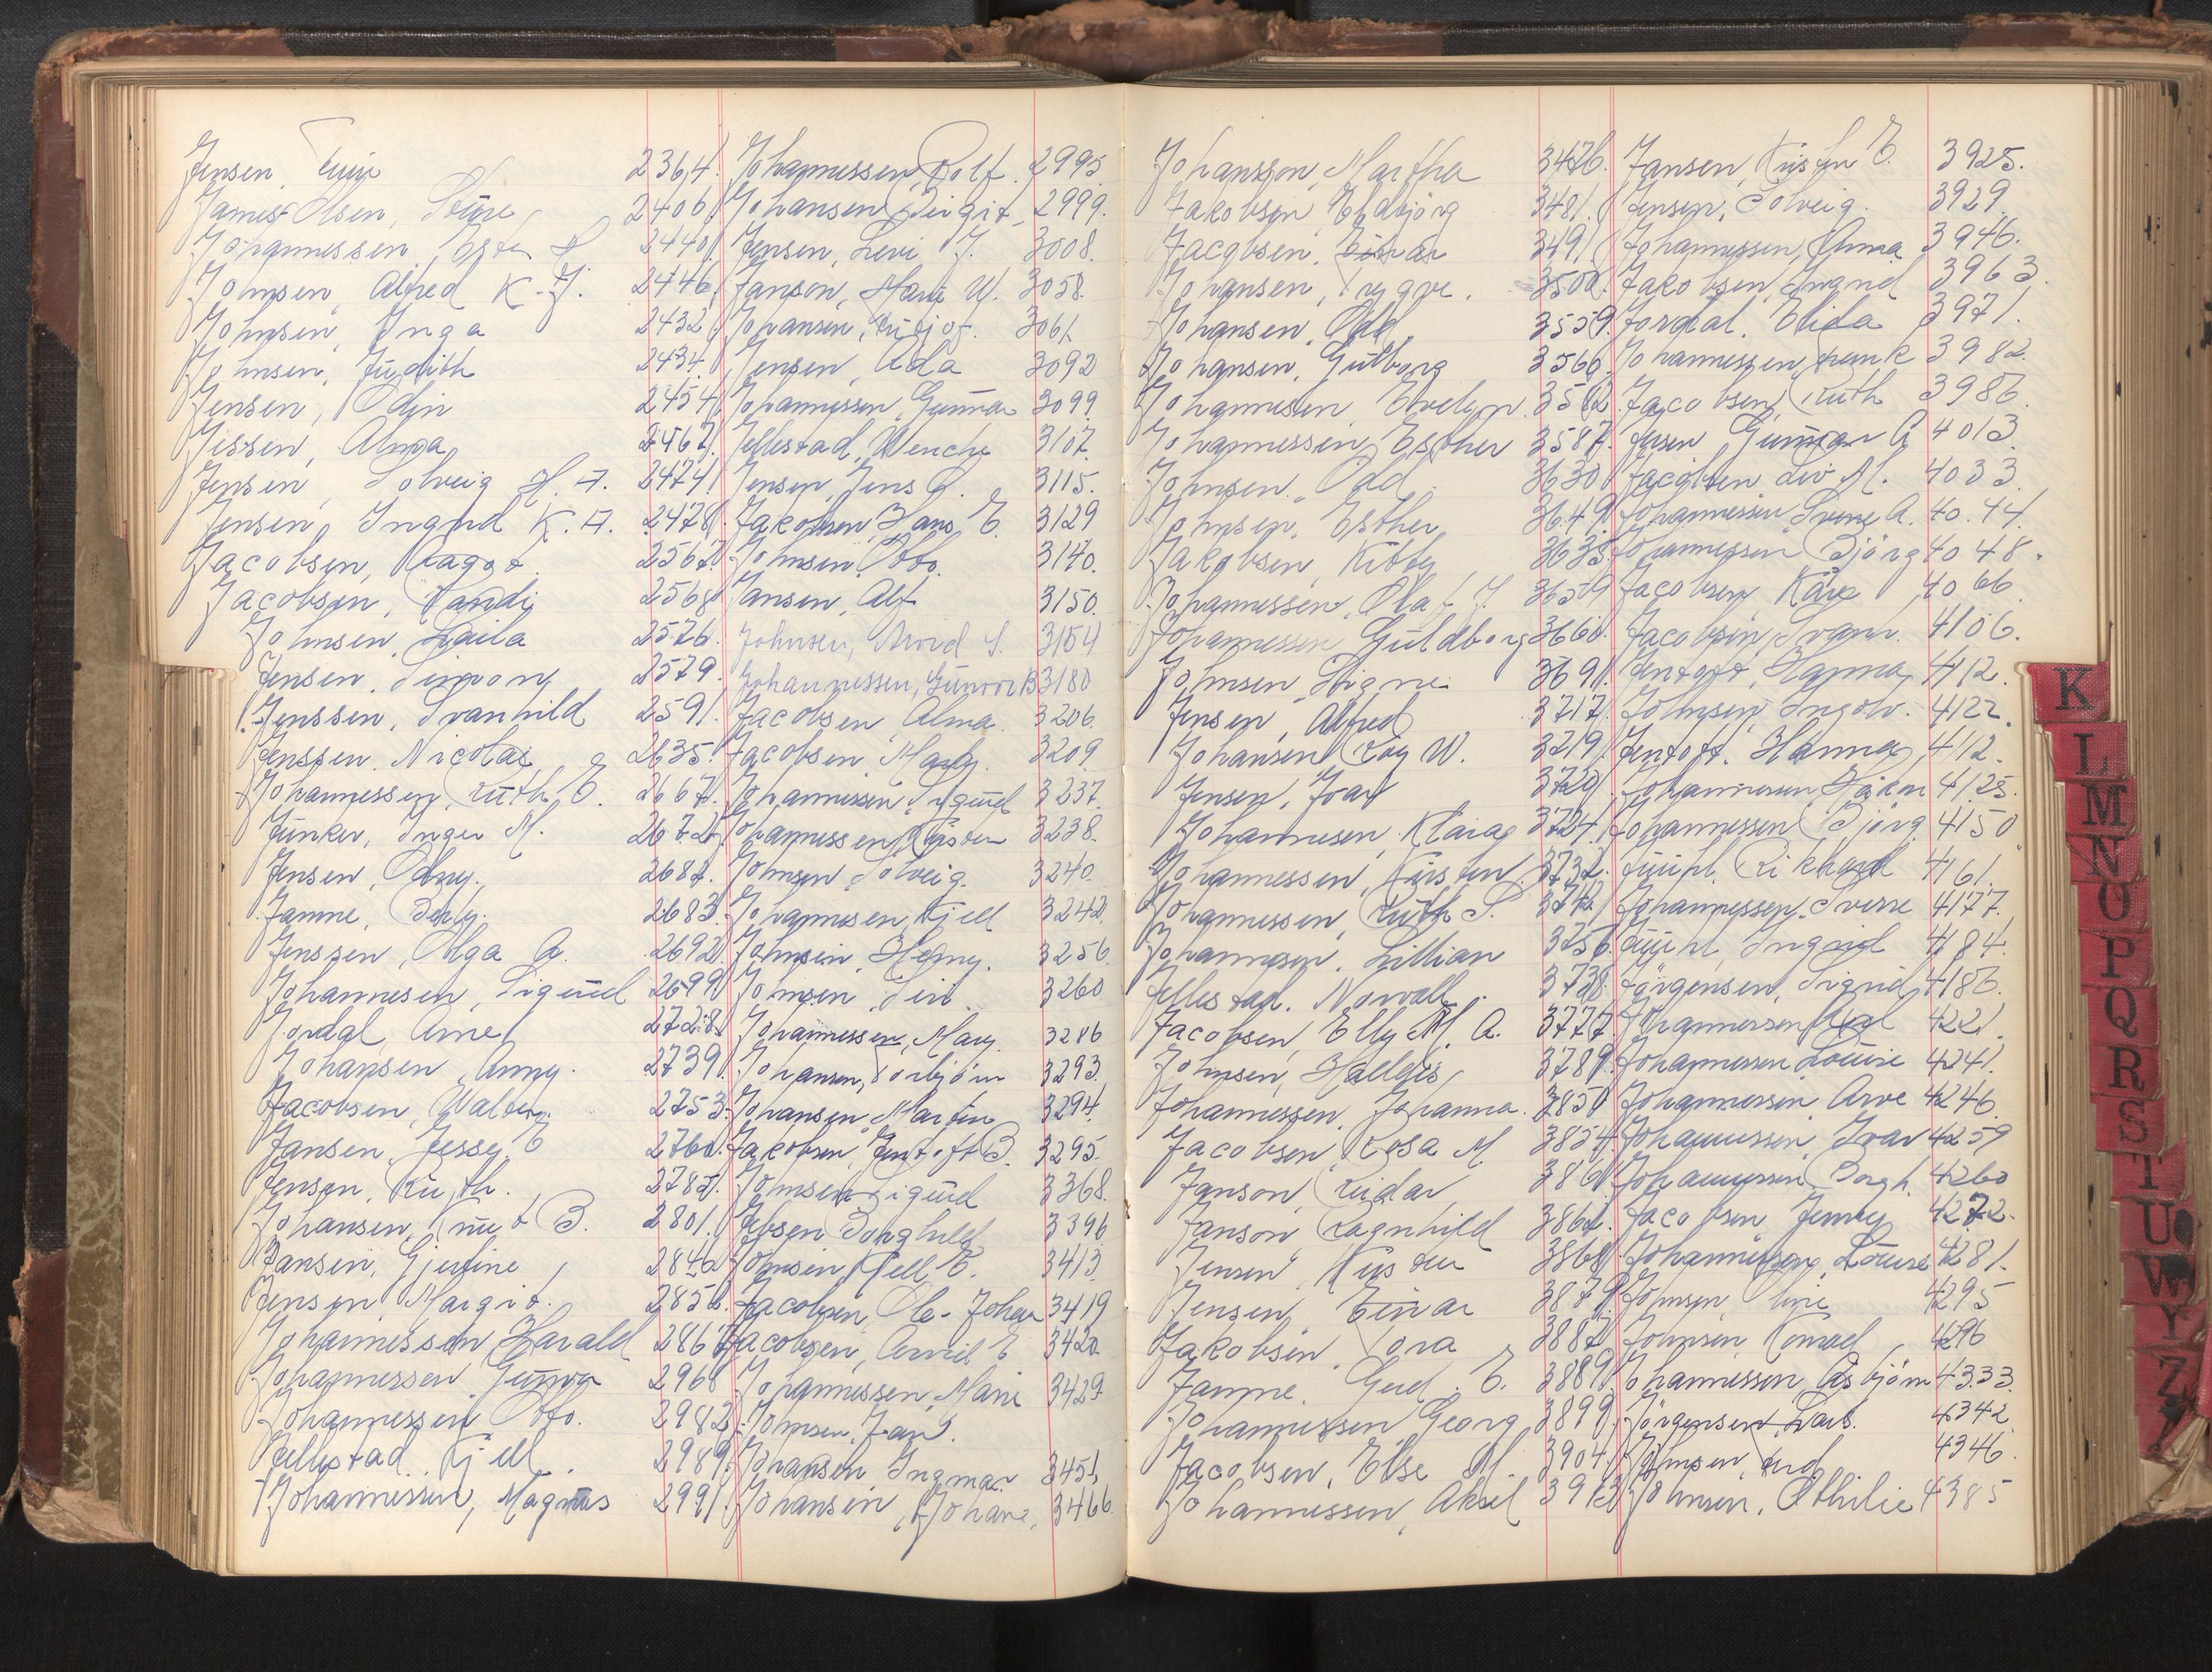 Jensen, 2364.
James Olsen, 2406
Johannessen, 2440
Johnsen, Alfred K. J. 2446
Johnsen, Inga 2432
Johnsen, Judith 2434.
Jensen, Odin 2454
Jessen, Alma 2462
Jensen, Solveig H. A. 2474
Jensen, Ingrid K. A. 2478
Jacobsen, Dagot 2567
Jacobsen, Randi 2568
Johnsen, Laila 2576.
Jensen, Simony 2579.
Jenssen, Svanhild 2591.
Jenssen, Nicolai 2635.
Johannessen, Ruth E. 2667.
Junker, Inger M. 2672
Jensen, Odny. 2682.
Janne, Berly. 2683.
Jenssen, Olga A. 2692
Johannesen, Sigurd 2699
Jordal, Arne 2728.
Johansen, Anny. 2739.
Jacobsen, Walborg. 2753.
Jansen, Jessy E 2760.
Jensen, Ruth. 2785.
Johansen, Knut B. 2801.
Jansen, Gjertine 2846
Jensen, Margit. 2856.
Johannessen, Harald 2867
Johannessen, Gunvor 2968
Johannessen, Otto. 2982.
Jellestad, Kjell. 2989.
Johannessen, Magnus 2991.
Johannessen, Rolf. 2995
Johansen, Birgit 2999.
Jensen, Levi J. 3008.
Janson, Marie W. 3058.
Johansen, Fritjof. 3061.
Jensen, Ada 3092
Johannessen, Gunnar 3099.
Jellestad, Wenche 3107.
Jensen, Jens O. 3115.
Jakobsen, Hans E. 3129
Johnsen, Otto. 3140.
Jansen, Alf 3150.
Johnsen, Arvid S. 3154
Johannessen, Gunvor B 3180
Jacobsen, Alma. 3206.
Jacobsen, Marly. 3209.
Johannessen, Sigurd 3237.
Johannessen, Kirsten 3238.
Johnsen, Solveig. 3240.
Johannesen, Kjell 3242.
Johnsen, Henny. 3256.
Johnsen, Siri 3260
Johannessen, Mary. 3286
Johansen, Torbjörn 3293.
Johansen, Martin 3294.
Jakobsen, Jentoft B. 3295.
Johnsen, Sigurd 3368.
Jebsen, Borghild 3396.
Johnsen, Kjell E. 3413.
Jacobsen, Ole-Johan 3419
Jacobsen, Arvid E 3420.
Johannessen, Marie 3429.
Johnsen, Jan S.
Johansen, Ingmar 3451.
Johansen, Johane, 3466.
Johansson, Martha 3476.
Jakobsen, Eldbjörg 3481.
Jacobsen, Einar 3491
Johansen, Trygve. 3502.
Johansen, Odd 3559.
Johansen, Gutborg 3560.
Johannesen, Evelyn. 3562.
Johannessen, Esther 3587.
Johnsen, Odd 3630
Johnsen, Esther 3649
Jakobsen, Kitty 3635.
Johannessen, Olaf J. 3659
Johannessen, Guldborg 3660.
Johnsen, Signe 3691.
Jensen, Alfred 3717.
Johansen, Roy W. 3719.
Jensen, Ivar 3720
Johannesen, Klara 3724.
Johannessen, Kirsten 3732.
Johannessen, Ruth S. 3742
Johannesen, Lillian 3756.
Jellestad, Norvall. 3738.
Jacobsen, Elly M. A. 3777.
Johnsen, Halldis, 3789.
Johannessen, Johanna. 3850
Jacobsen, Rosa M. 3854.
Janson, Reidar 3861
Janson, Ragnhild 3862.
Jensen, Kirsten 3868
Jensen, Einar 3879.
Jakobsen, Tora 3887
Janne, Gud. E. 3889
Johannessen, Georg 3899.
Jacobsen, Else M. 3904.
Johannessen, Aksel 3913
Jansen, Kirsten E. 3925.
Jensen, Solveig. 3929.
Johannessen, Anna 3946.
Jakobsen, Ingrid 3963.
Jordal, Elida 3971.
Johannessen, Frank 3982.
Jacobsen, Ruth 3986.
Jensen, Gunnar A 4013.
Jacobsen, Liv M. 4033.
Johannessen, Sverre A. 40.44.
Johannessen, Björg 4048.
Jacobsen, Kåre 4066.
Jacobsen, Svann. 4106.
Jentoft, Hanna, 4112.
Johnsen, Ingolv. 4122.
Jentoft, Hanna, 4112.
Johannessen, Håkon 4125.
Johannessen, Björg. 4150
Juuhl, Rikhard 4161.
Johannessen, Sverre 4177.
Juuhl, Ingrid 4184.
Jörgensen, Sigrid 4186.
Johannessen, 4221
Johannessen, Louise 4241.
Johannessen, Arve 4246.
Johannessen, Ivar 4259
Johannessen, Borgh. 4260
Jacobsen, Jenny 4272.
Johannessen, Louise 4281.
Johnsen, Line 4295
Johnsen, Konrad, 4296
Johannessen, Asbjörn 4333.
Jörgensen, Lars. 4342.
Johnsen, 4346.
Johnsen, Othilie 4385
K
L
M
N
O
P
Q
R
S
T
U
W
Y
Z